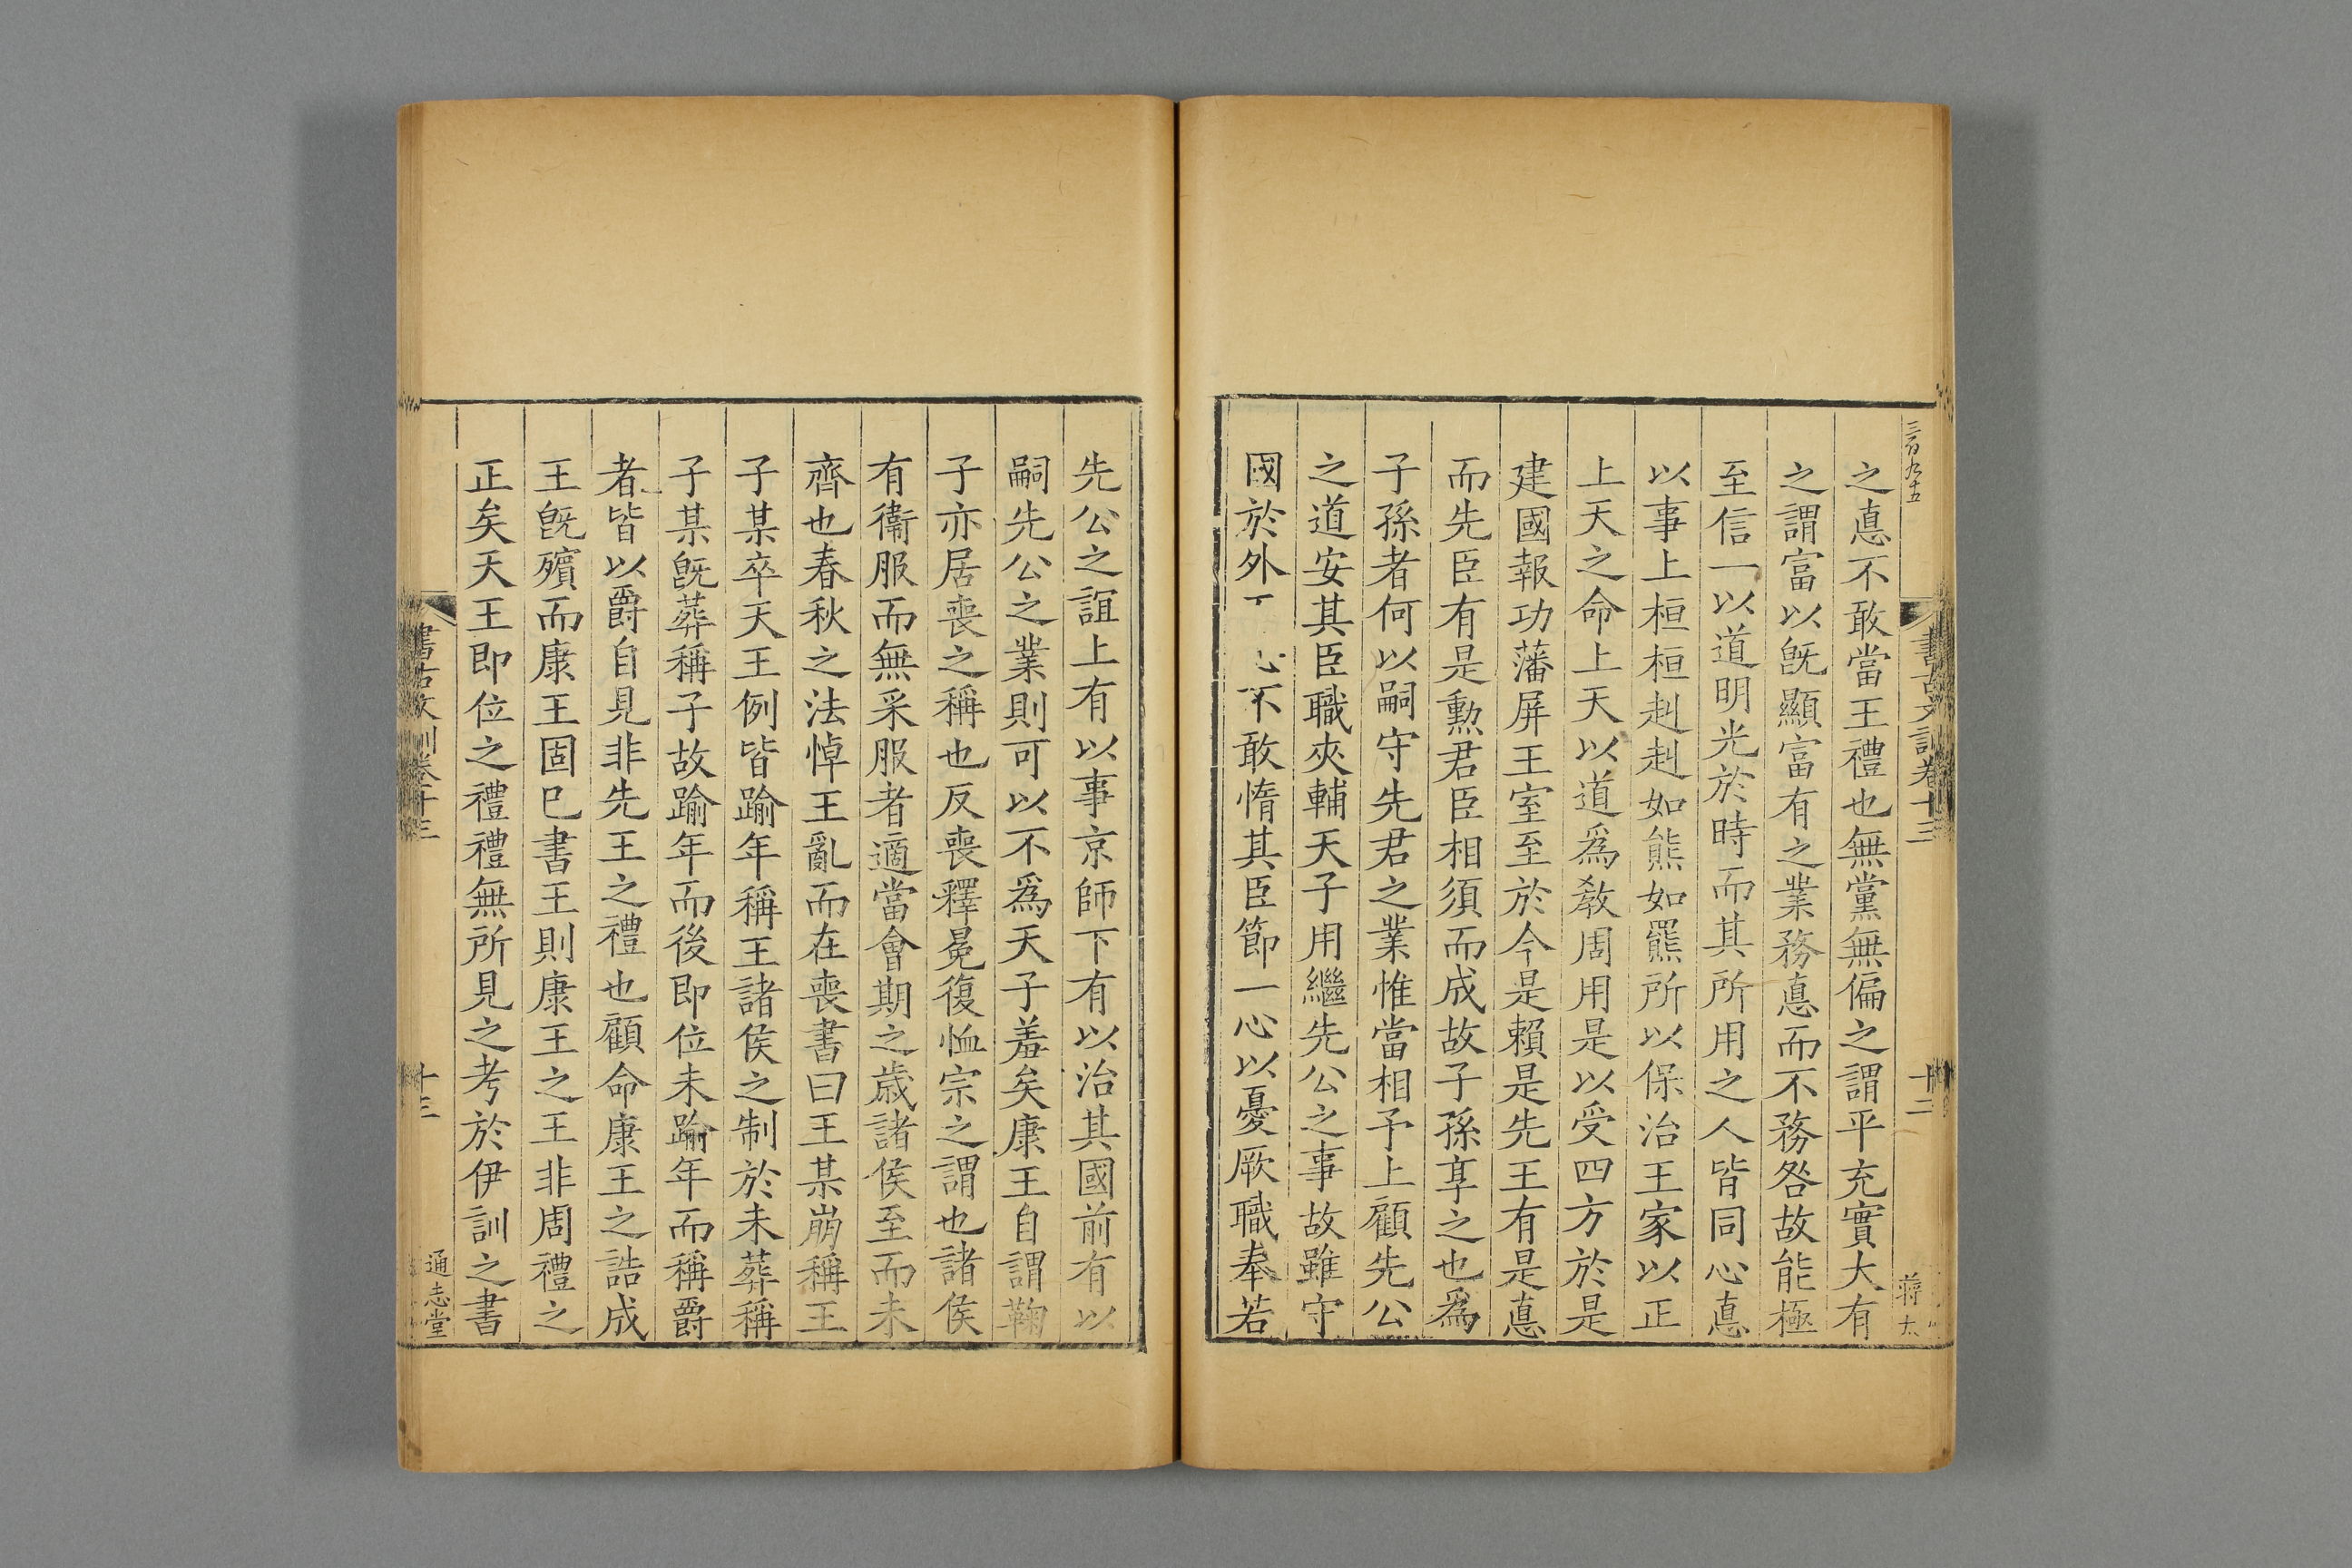 三百九十五
之悳不敢當王禮也無黨無偏之謂平充實大有
之謂富以旣顯富有之業務悳而不務咎故能極
至信一以道明光於時而其所用之人皆同心悳
以事上桓桓赳赳如熊如羆所以保治王家以正
上天之命上天以道爲敎周用是以受四方於是
建國報功藩屏王室至於今是賴是先王有是悳
而先臣有是勲君臣相須而成故子孫享之也爲
子孫者何以嗣守先君之業惟當相予上顧先公
之道安其臣職夾輔天子用繼先公之事故雖守
國於外不敢惰其臣節一心以憂厥職奉若
書古文訓卷十三
十二
蔣太
先公之誼上有以事京師下有以治其國前有以
嗣先公之業則可以不爲天子羞矣康王自謂鞠
子亦居喪之稱也反喪釋冕復恤宗之謂也諸侯
有衞服而無采服者適當會期之歲諸侯至而未
齊也春秋之法悼王亂而在喪書曰王某崩稱王
子某卒天王例皆踰年稱王諸侯之制於未葬稱
子某旣葬稱子故踰年而後即位未踰年而稱爵
者皆以爵自見非先王之禮也顧命康王之誥成
王旣殯而康王固巳書王則康王之王非周禮之
正矣天王即位之禮禮無所見之考於伊訓之書
書古文訓卷十三
十三
通志堂